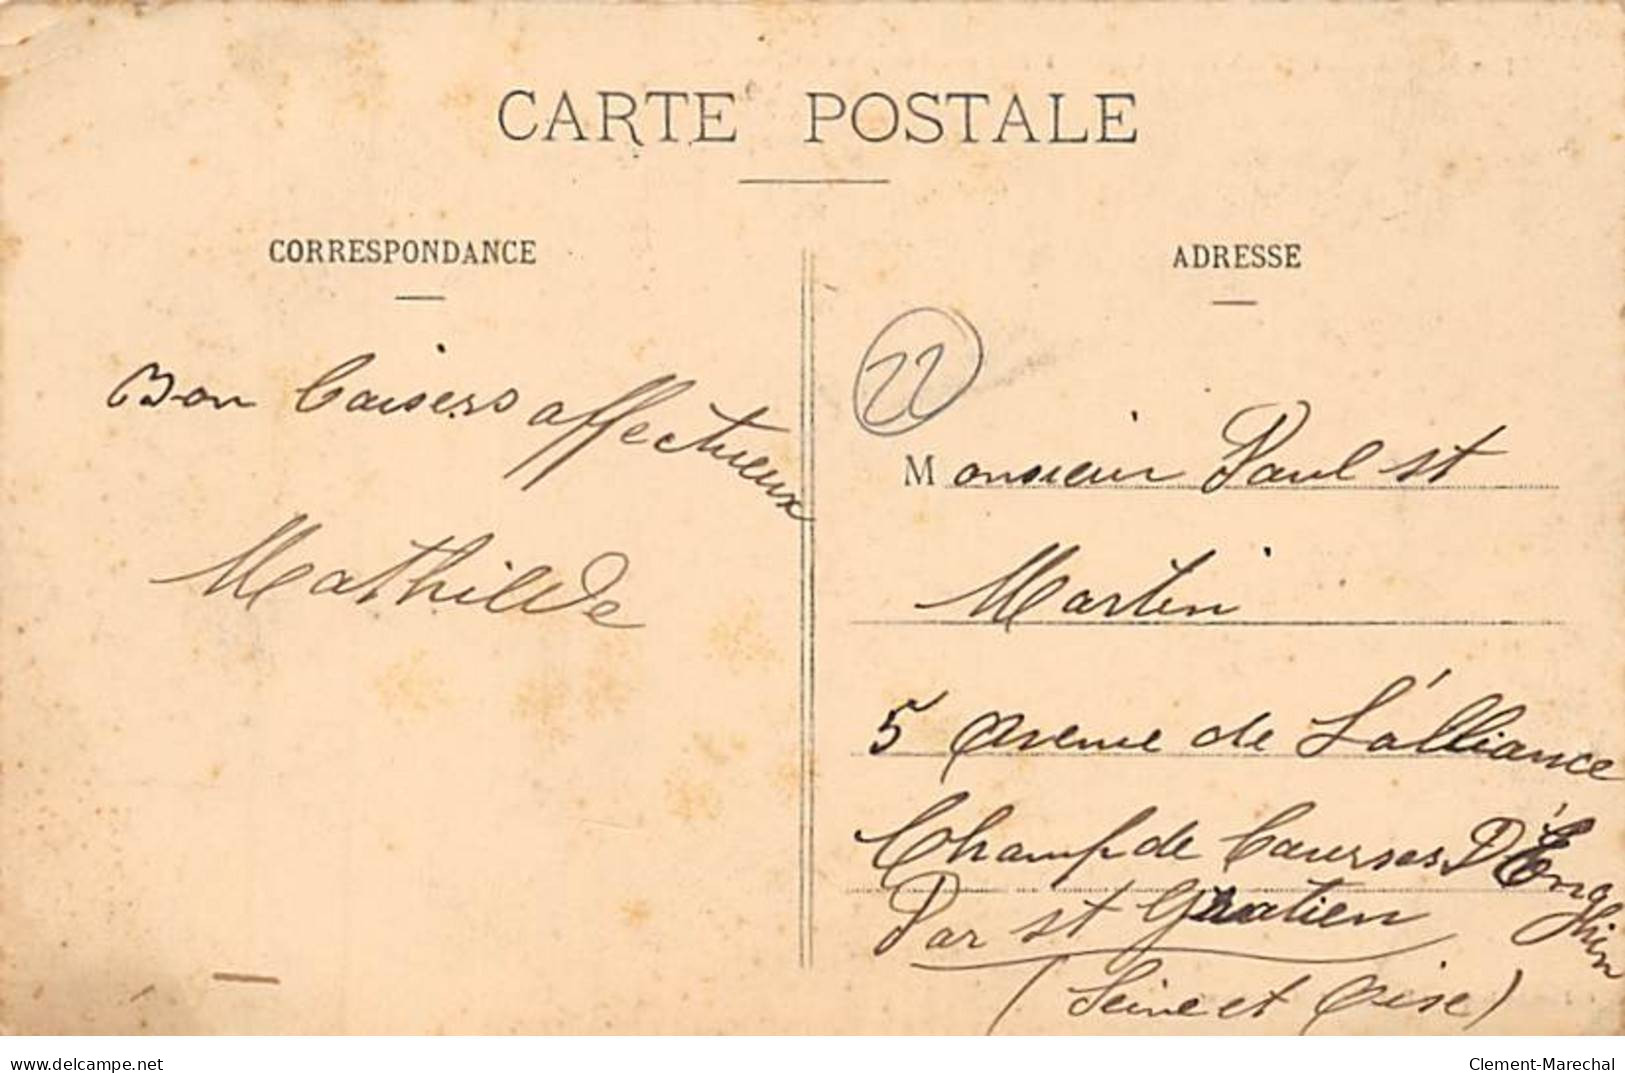 CARTE POSTALE
CORRESPONDANCE
Bon baisers affectueux
Mathilde
ADRESSE
22
Monsieur Paul st
Martin
5 avenue de L'alliance
Champ de Courses D'Enghien
Par st Gratien
(Seine et Oise)
www.delcampe.net
Clement-Marechal